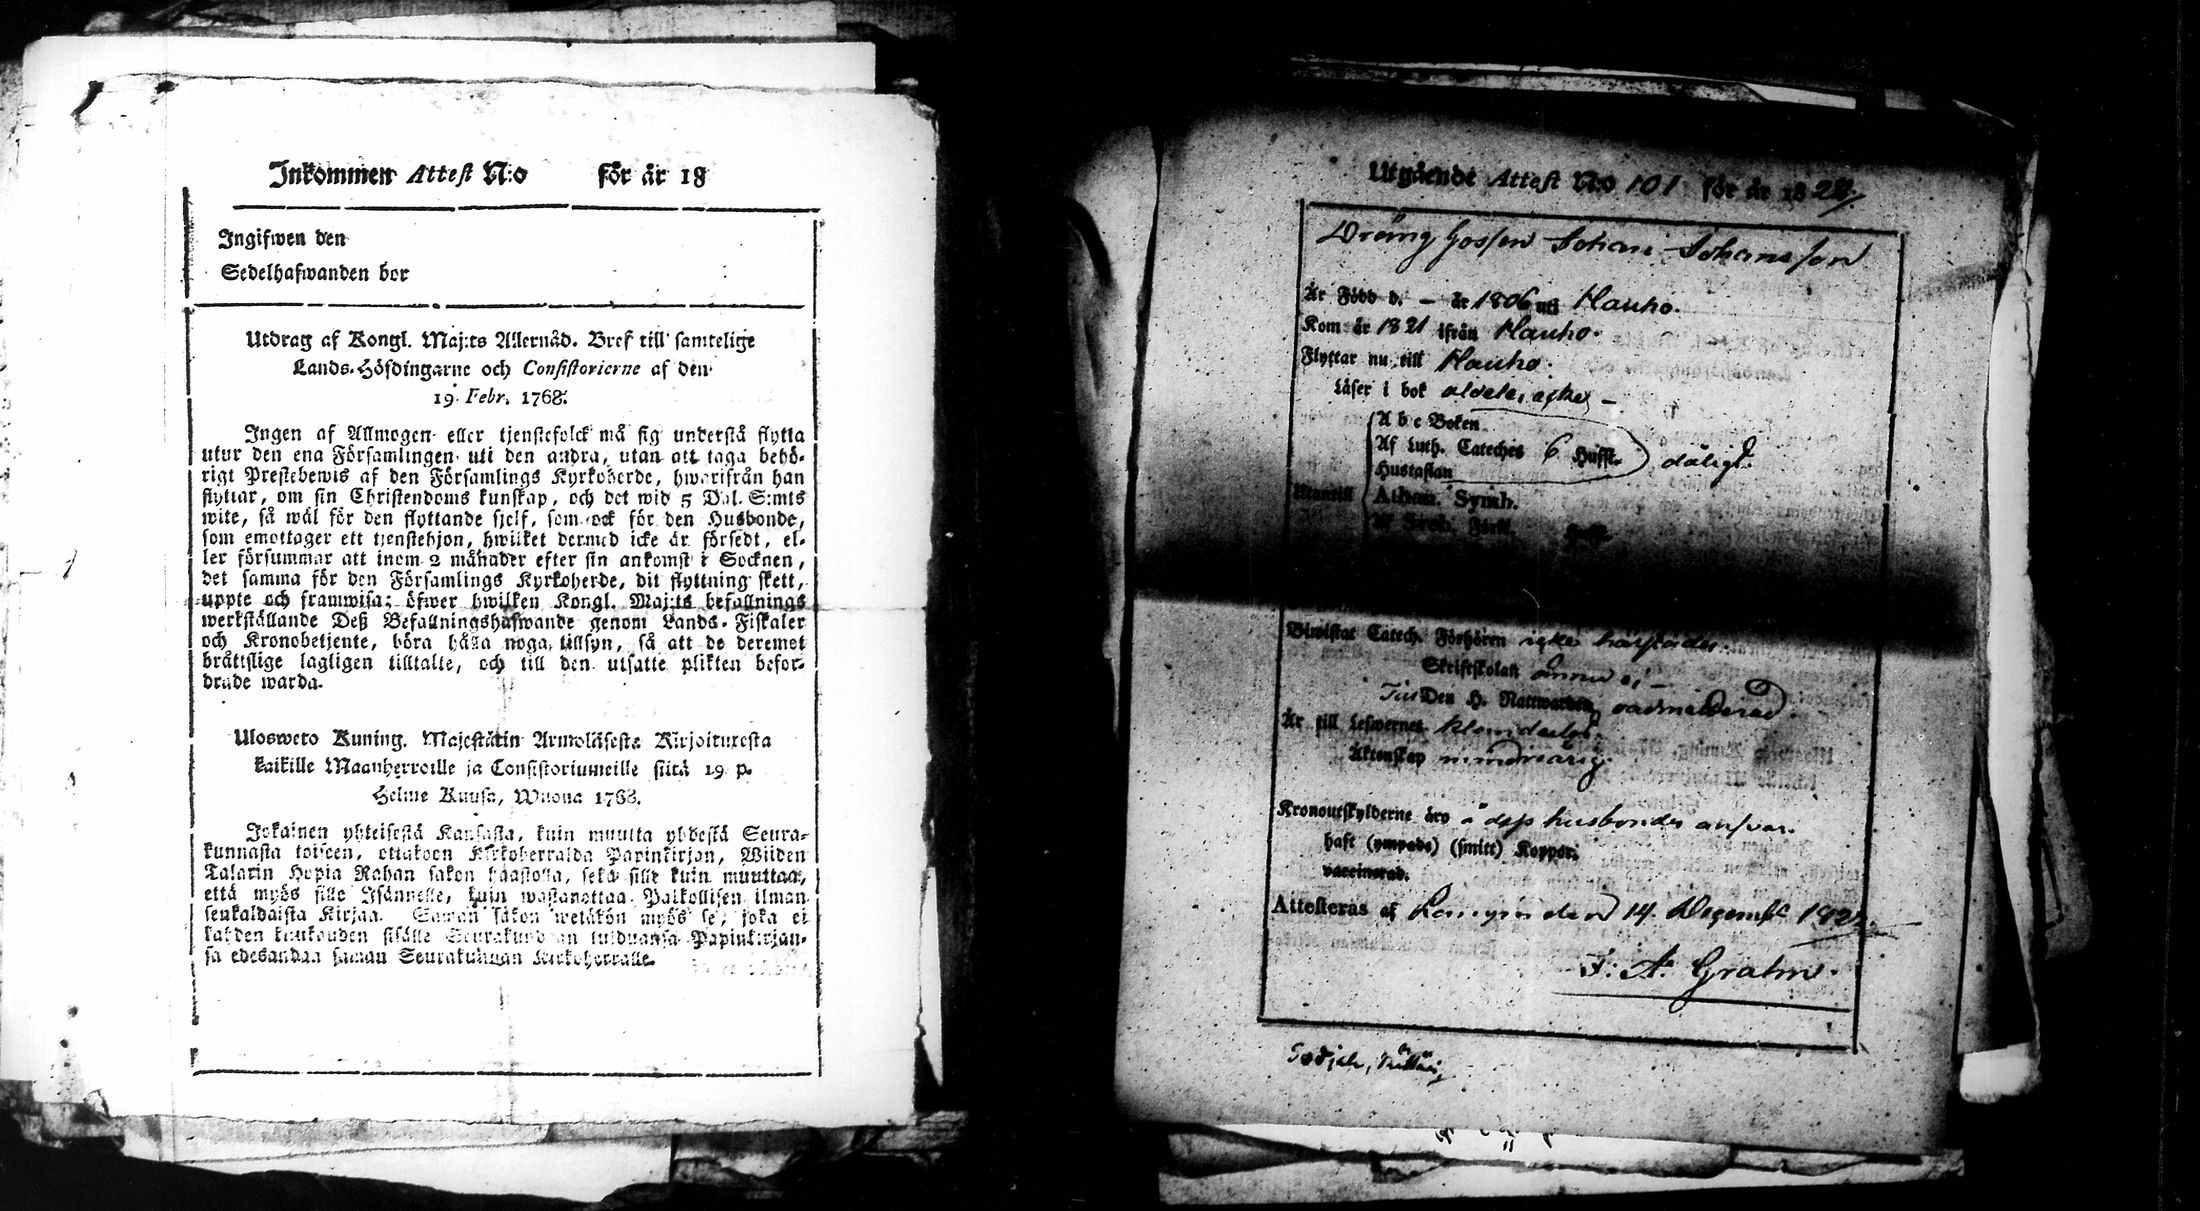 Inkommen Attest N:o för år 18
Ingifwen den
Sedelhafwanden bor
Utdrag af Kongl. Maj:ts Allernåd. Bref till samtelige
Lands-Höfdingarne och Consistorierne af den
19 Febr. 1768.
Ingen af Allmogen eller tjenstefolck må sig understå flytta
utur den ena Församlingen uti den andra, utan att taga behö-
rigt Prestebewis af den Församlings Kyrkoherde, hwarifrån han
flyttar, om sin Christendoms kunskap, och det wid 5 Dal. S:mts
wite, så wäl för den flyttande sjelf, som ock för den Husbonde,
som emottager ett tjenstehjon, hwilket dermed icke är försedt, el-
ler försummar att inom 2 månader efter sin ankomst i Socknen,
det samma för den Församlings Kyrkoherde, dit flyttning skett,
uppte och framwisa; öfwer hwilken Kongl. Maj:ts befallnings
werkställande Deß Befallningshafwande genom Lands-Fiskaler
och Kronobetjente, böra hålla noga tillsyn, så att de deremot
bråttslige lagligen tilltalte, och till den utsatte plikten befor-
drade warda.
Ulosweto Kuning. Majestätin Armoläsesta Kirjoituxesta
kaikille Maanherroille ja Consistoriumeille siitä 19 p.
Helme Kuusa, Wuona 1768.
Jokainen yhteisestä Kansasta, kuin muutta yhdestä Seura-
kunnasta toiseen, ottakoon Kirkoherralda Papinkirjan, Wiiden
Talarin Hopia Rahan sakon haastolla, sekä sille kuin muuttaa,
että myös sille Isännelle, kuin wastanottaa Palkollisen ilman
senkaldaista Kirjaa. Saman sakon wetäkön myös se, joka ei
kahden kuukauden sisälle Seurakundaan tulduansa Papinkirjan-
sa edesandaa saman Seurakunnan Kirkoherralle.
Utgående Attest N:o 101 för år 1822.
Dräng gossen Johan Johansson
Är Född d. — år 1806 uti Hauho.
Kom år 1821 ifrån Hauho.
Flyttar nu till Hauho.
Läser i bok aldeles icke —
A b c Boken
Af Luth. Cateches 6 Hufst. dåligt.
Hustaflan
Utantill Athan. Symb.
Biwistat Catech. Förhören icke härstädes.
Skriftskolan ännu ej —
Till Den H. Nattwarden oadmitterad.
Är till Lefwernet klanderlös.
Äktenskap minderårig.
Kronoutskylderne äro å dess husbondes ansvar.
haft (ympade) (smitt) Koppor.
vaccinerad.
Attesteras af den 14. December 182
F. A. Grahn.